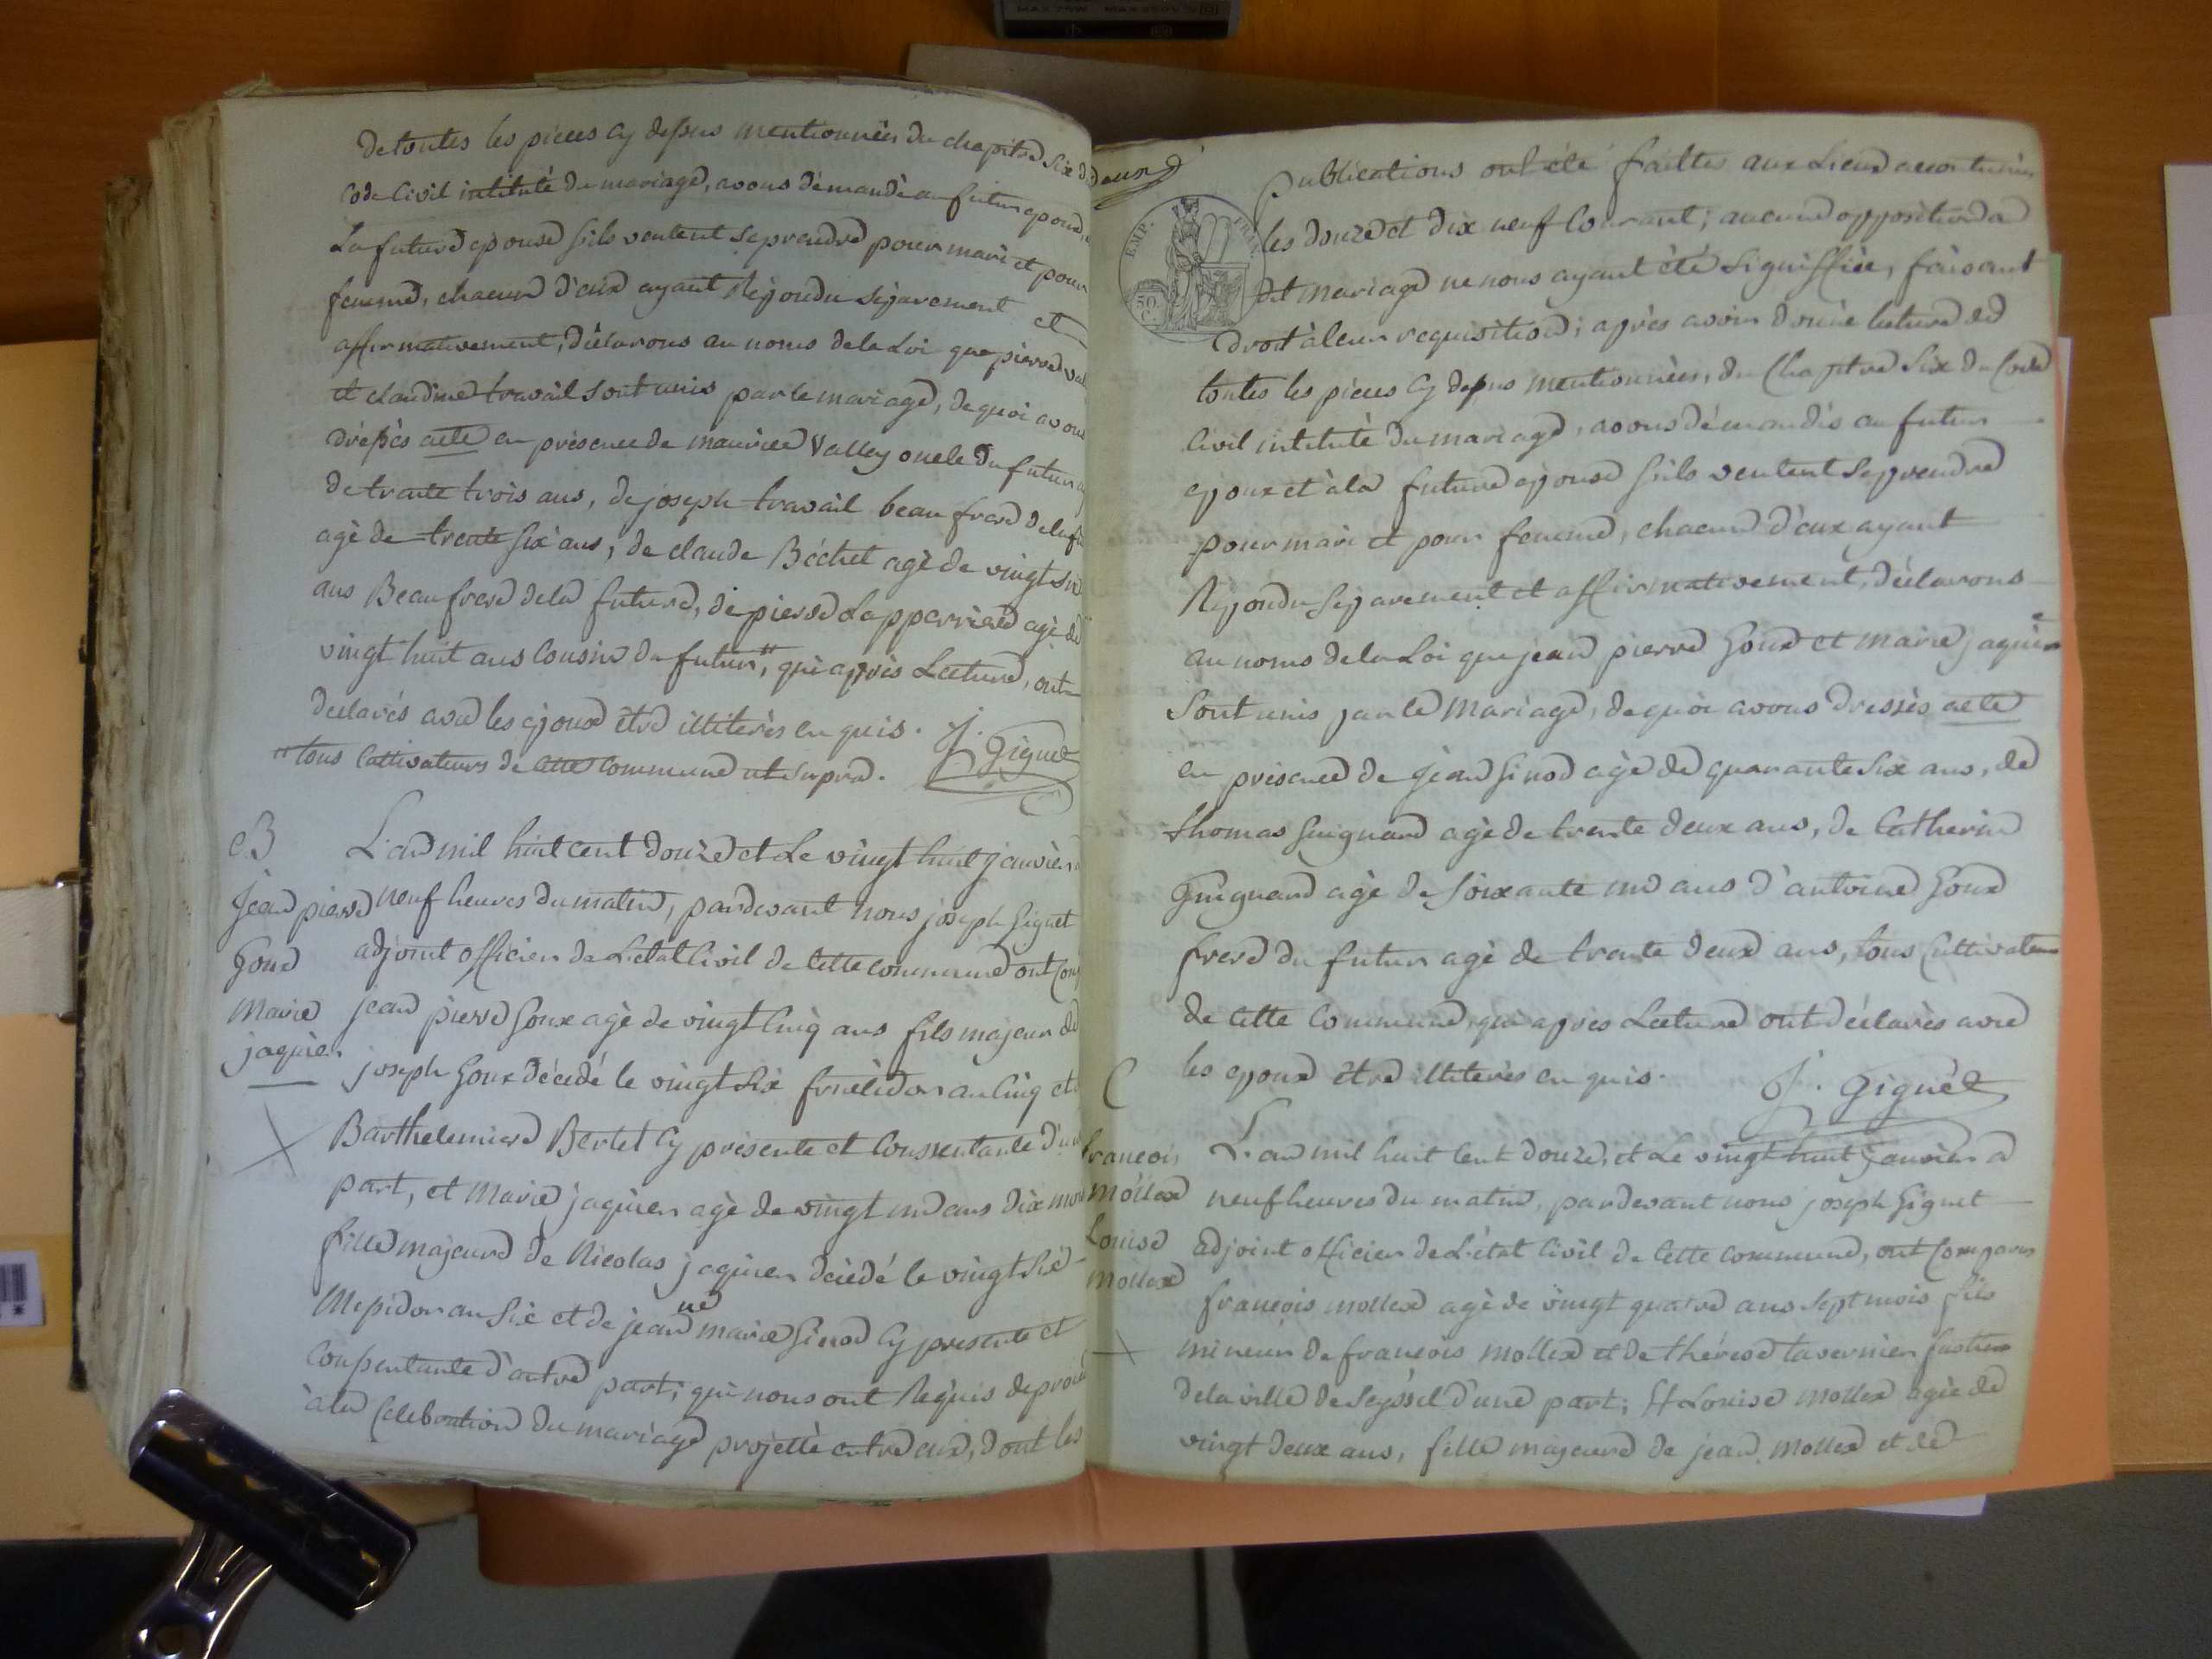 de toutes les pieces cy dessus mentionnées du chapitre six du
Code Civil intitulé du mariage, avons démandé au futur epoux
La future épouse s'ils veulent se prendre pour mari et pour
femme, chacun d'eux ayant Répondu séparement et
affirmativement, déclarons au noms de la Loi que pierre
et claudine travail sont unis par le mariage, de quoi avons
dréssés acte en présence de maurice Valley oncle du futur
de trente trois ans, de joseph travail beau frere de la
agé de trente six ans, de claude Béchet agé de vingt six
ans Beau frere de la future, de pierre Lapperriere agé de
vingt huit ans Cousin du futur", qui après Lecture, ont
declarés avec les époux être illiterés enquis. J. Giguet
"tous Cultivateurs de cette Commune ut supra.
3
Jean pierre
Goux
Marie
jaquier
L'an mil huit cent douze et Le vingt huit janvier
neuf heures du matin, pardevant nous joseph Giguet
adjoint officier de L'état Civil de Cette Commune ont
jean pierre Goux agé de vingt Cinq ans fils majeur de
joseph Goux décédé le vingt six frucidor an Cinq et
Barthelemiere Bertet Cy présente et Consentante d'une
part, et Marie jaquier agé de vingt un ans dix mois
fille majeure de Nicolas jaquier décédé le vingt six
Messidor an six et de jeanne marie Ginod Cy presente et
Consentante d'autre part; qui nous ont Réquis de
à la Celebration du mariage projetté entre eux, dont les
deux
EMP. FRAN.
50 C.
publications ont été faittes aux Lieux accoutumés
les douze et dix neuf Courant; aucune opposition a
dit mariage ne nous ayant été signiffiée, faisant
droit à leur requisition; après avoir donné lecture de
toutes les pieces cy dessus mentionnées, du Chapitre Six du Code
Civil intitulé du mariage, avons démandés au futur
epoux et à la future epouse s'ils veulent se prendre
pour mari et pour femme, chacun d'eux ayant
Répondu séparement et affirmativement, déclarons
au noms de la Loi que jean pierre Goux et marie jaquier
Sont unis par le Mariage, de quoi avons dressés acte
en présence de Jean Ginod agé de quarante Six ans, de
thomas Guignard agé de trente deux ans, de Catherin
Guignard agé de Soixante un ans d'antoine Goux
frere du futur agé de trente deux ans, tous Cultivateurs
de Cette Commune, qui après Lecture ont déclarés avec
les epoux être illiterés enquis. J. Giguet
françois
mollex
Louise
mollex
L'an mil huit Cent douze, et Le vingt huit janvier a
neuf heures du matin, pardevant nous joseph Giguet
adjoint officier de L'état Civil de Cette Commune, ont Comparus
françois mollex agé de vingt quatre ans sept mois fils
mineur de françois mollex et de thérese tavernier
de la ville de Seyssel d'une part; Et Louise mollex agée de
vingt deux ans, fille majeure de jean mollex et de